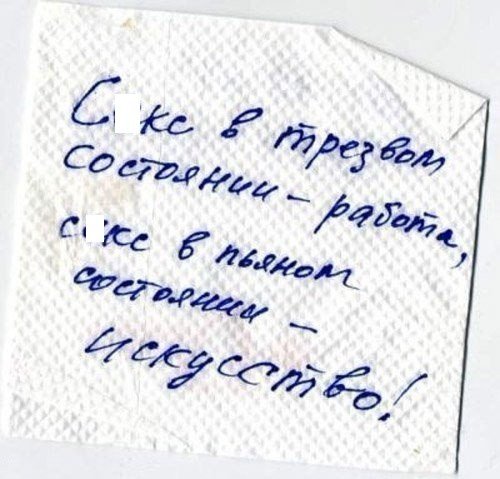 С кс в трезвом
состоянии - работа,
с кс в пьяном
состоянии -
искусство!